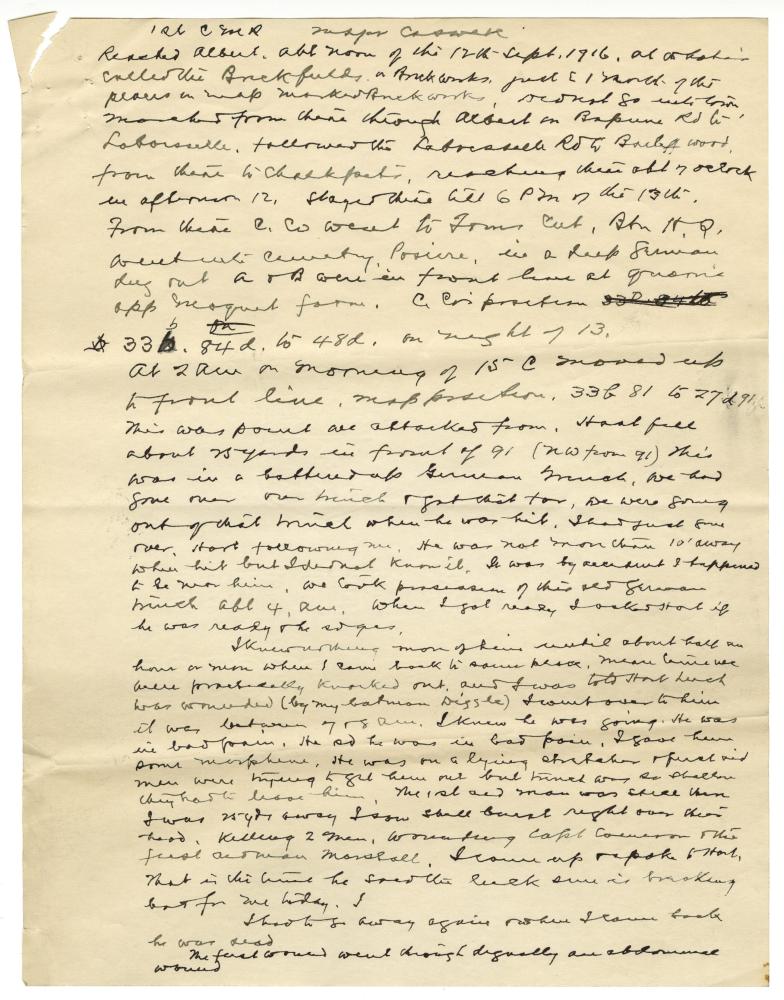 1st C M R Major Caswell
Reached Albert. abt noon of the 12th Sept. 1916. at what is
called the Brickfields or Brickworks. just E & north of the
places on map marked Brickworks, did not go into town
marched from there through Albert on Bapaume Rd to
Laboisselle. followed the Laboisselle Rd to Bailiff wood.
from there to Chalkpits, reaching there abt 7 oclock
in afternoon 12. Stayed there till 6 P m of the 13th.
From there C. Co went to Toms Cut, Btn H. Q.
went into Cemetery, Posiere, in a deep German
dug out A & B were in front line at
opp Moquet farm. C. Co's position
33 b. 84 d. to 48 d. on night of 13.
At 2 am on morning of 15 C moved up
to front line, map position, 33 b 81 to 27 d 91
This was point we attacked from. Hart fell
about 25 yards in front of 91 (NW from 91) This
was in a battered up German trench, we had
gone over our trench & got that far, we were going
out of that trench when he was hit. I had just gone
over, Hart following me. He was not more than 10' away
when hit but I did not know it. It was by accident I happened
to be near him. We took possession of this old German
trench abt 4. am. When I got ready I asked Hart if
he was ready & he sd yes.
I knew nothing more of him until about half an
hour or more when I came back to same place, mean time we
were practically knocked out. and I was told Hart Leech
was wounded (by my batman Diggle) I went over to him
it was between 7 & 8 am. I knew he was going. He was
in bad pain. He sd he was in bad pain. I gave him
some morphine. He was on a lying stretcher & first aid
men were trying to get him out but trench was so shallow
they had to leave him. The 1st aid man was still there
I was 25 yds away I saw shell burst right over their
head. Killing 2 men, wounding Capt Cameron & the
first aid man Marshall. I came up & spoke to Hart.
That is the time he said the luck sure is breaking
bad for me today. I
I had to go away again & when I came back
he was dead
The first wound went through diagonally an abdominal
wound